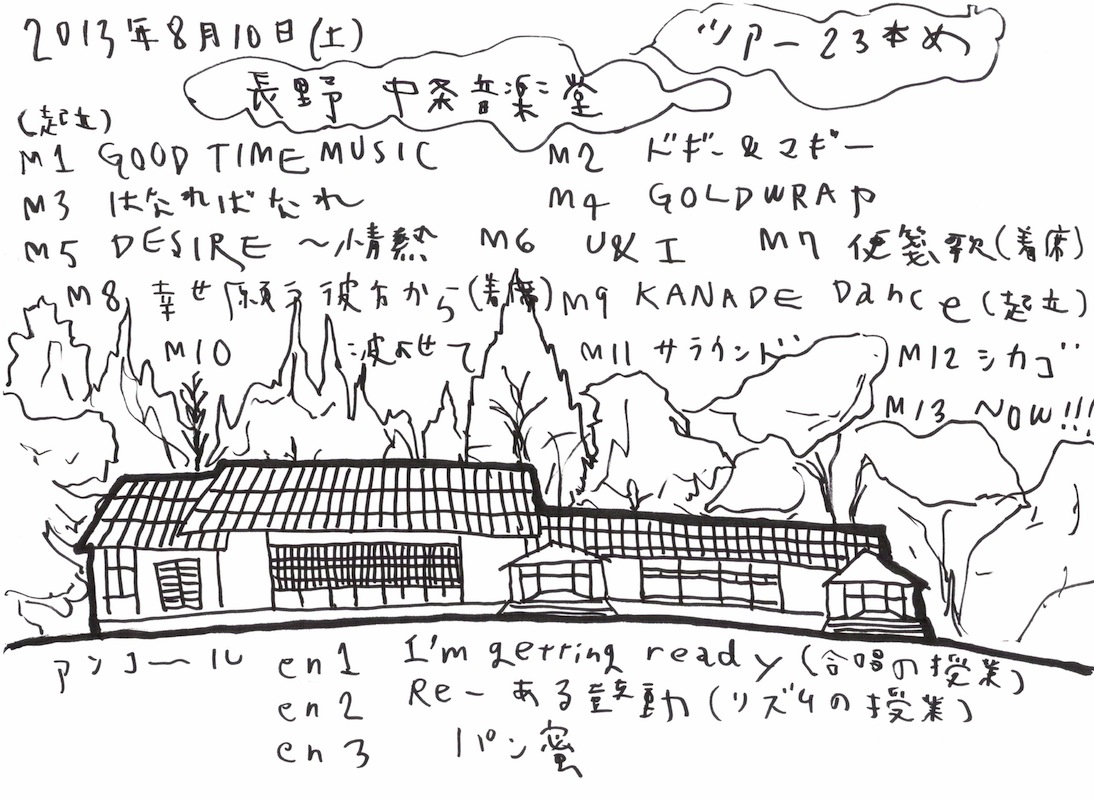 2013年8月10日(土)
ツアー23本め
長野 中条音楽堂
(起立)
M1 GOOD TIME MUSIC M2 ドギー&マギー
M3 はなればなれ M4 GOLDWRAP
M5 DESIRE ～情熱 M6 U&I M7 便箋歌(着席)
M8 幸せ願う彼方から(着席) M9 KANADE Dance(起立)
M10 波よせて M11 サラウンド M12 シカゴ
M13 NOW!!!
アンコール en1 I'm getting ready (合唱の授業)
en2 Re-ある鼓動(リズムの授業)
en3 パン蜜